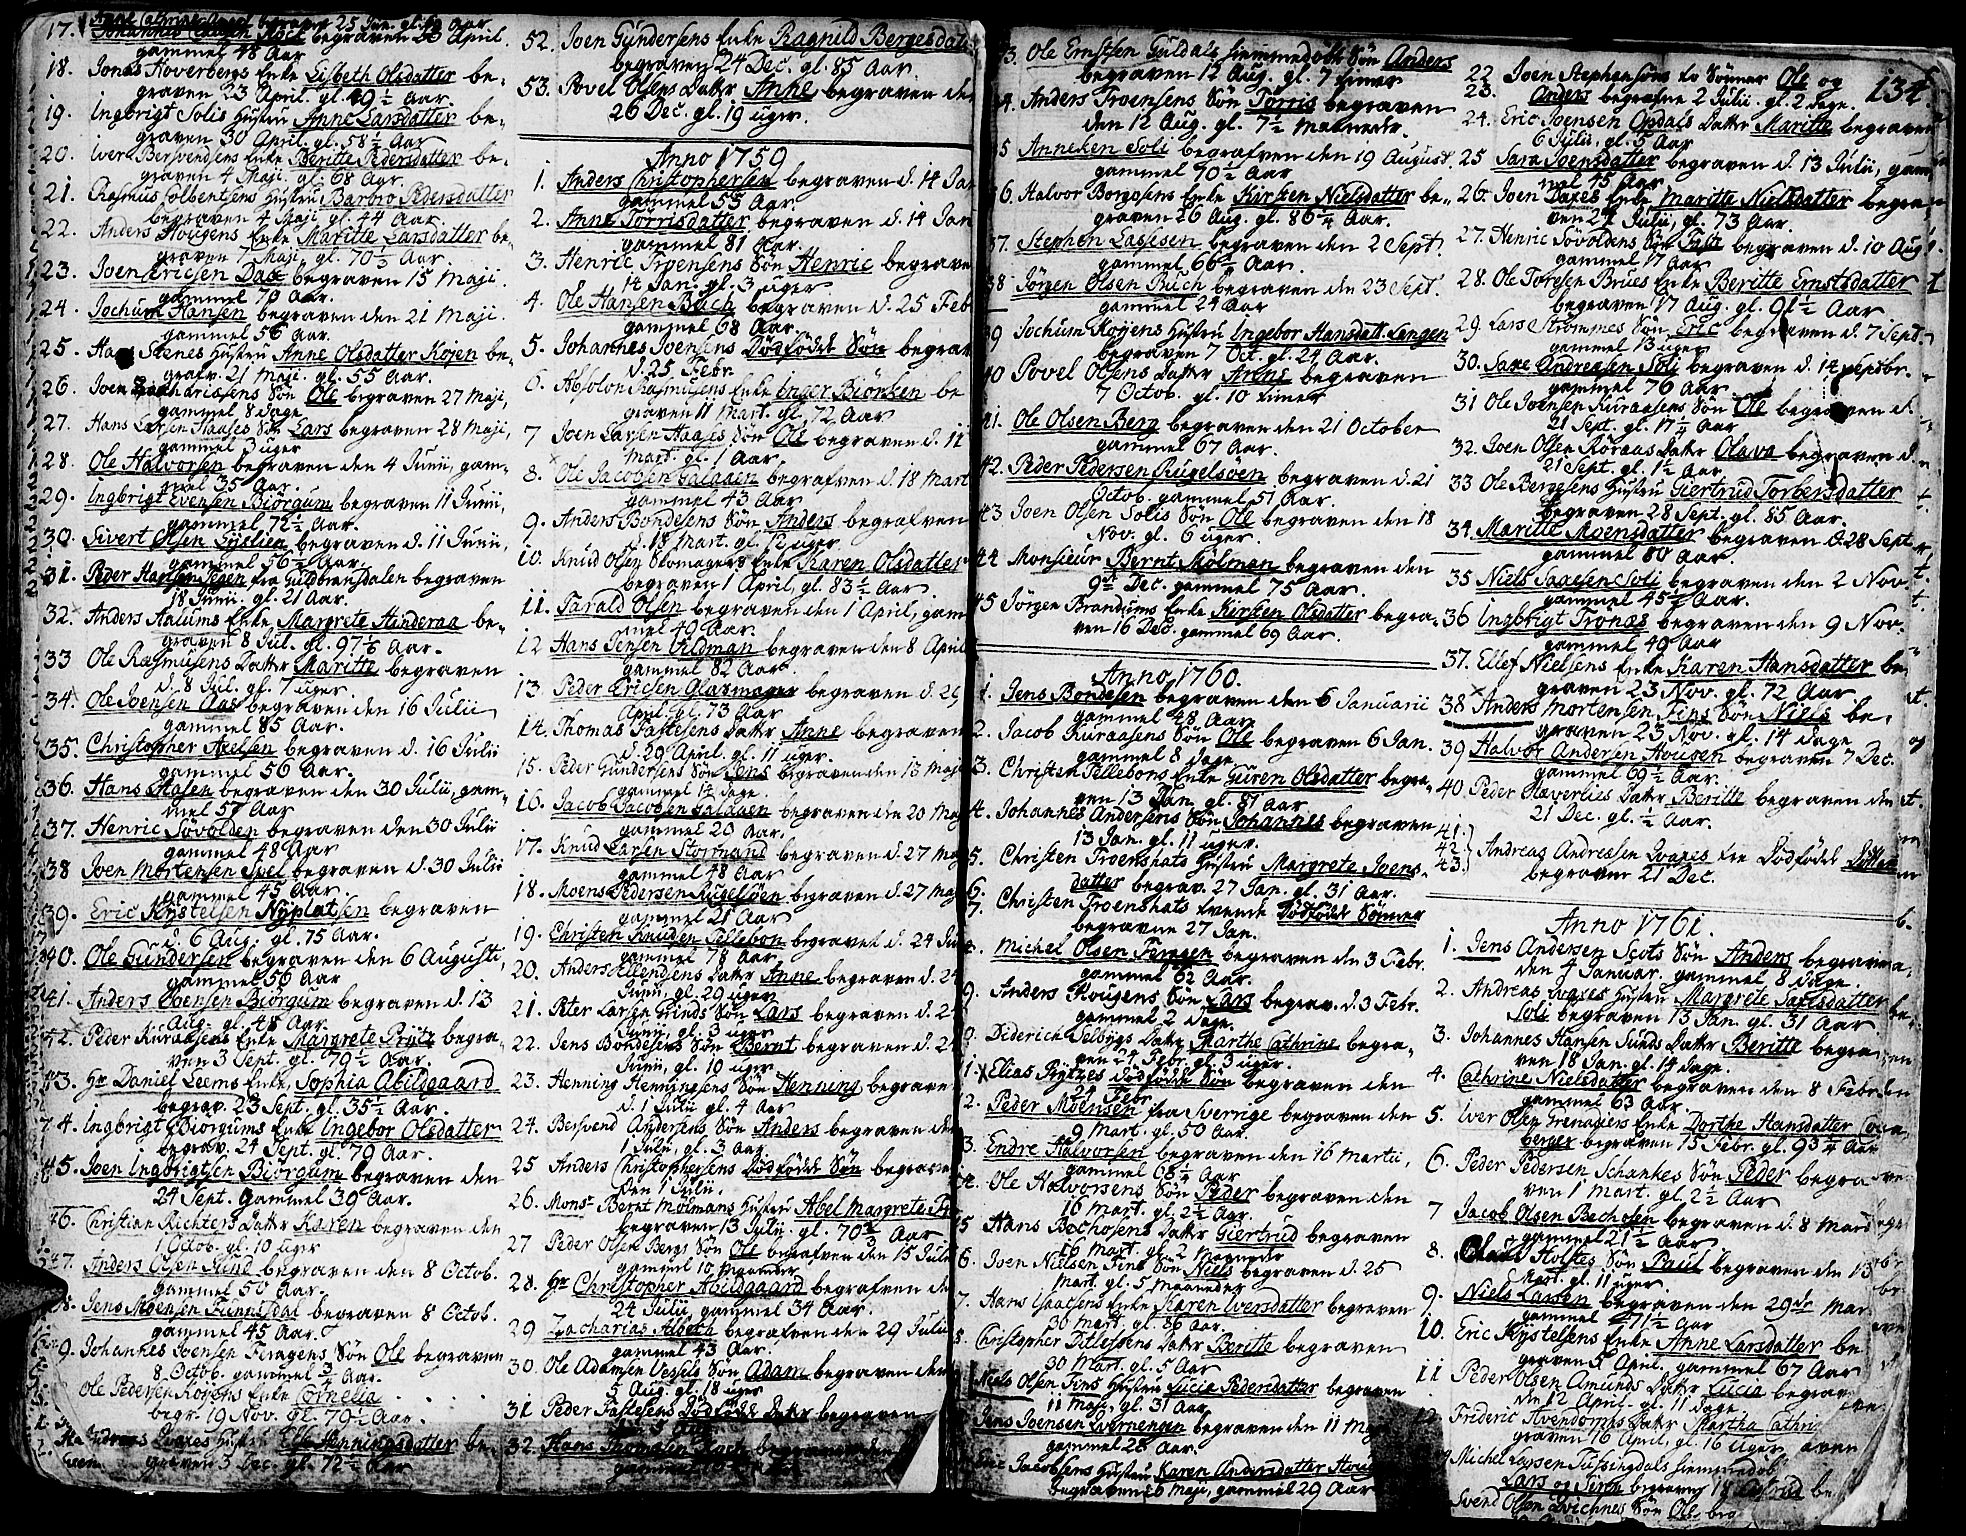 17. Johannes begraven 23 April.
gammel 48 Aar
18. Jonas Hoverbergs Enke Lisbeth Olsdatter be-
graven 23 April. gl. 49½ Aar.
19. Ingbrigt Solis Hustru Anne Larsdatter be-
graven 30 April. gl. 58½ Aar
20. Iver Bersvendsens Enke Beritte Pedersdatter be-
graven 4 Maji. gl. 68 Aar.
21. Rasmus Colbentsens Hustru Barbro Pedersdatter
begraven 4 Maji gl. 44 Aar.
22. Anders Hougens Enke Maritte Larsdatter be-
graven 7 Maji. gl. 70 Aar.
23. Joen Ericsen Daae begraven 15 Maji
gammel 70 Aar.
24. Jochum Hansen begraven den 21 Maji.
gammel 56 Aar.
25. Hans Stenes Hustru Anne Olsdatter Kojen be-
grafv. 21 Maji. gl. 55 Aar.
26. Joen Zachariasens Søn Ole begraven 27 Maji,
gammel 8 Dage
27. Hans Larsen Haases Søn Lars begraven 28 Maji,
gammel 3 uger
28. Ole Halvorsen begraven den 4 Junii, gam-
mel 35 Aar.
29. Ingbrigt Evensen Biörgum begraven 11 Junii,
gammel 72½ Aar.
30. Sivert Olsen begraven d. 11 Junii,
gammel 56½ Aar.
31. Peder Hansen fra Guldbransdalen begraven
18 Junii. gl. 21 Aar.
32. Anders Aalums Enke Margrete Henderaa be-
graven 8 Jul. gl. 97 Aar.
33 Ole Rasmusens Datter Maritte begraven
d. 8 Jul. gl. 7 uger.
34. Ole Joensen Aas begraven den 16 Julii
gammel 85 Aar.
35. Christopher Axelsen begraven d. 16 Julii
gammel 56 Aar.
36. Hans Aasen begraven den 30 Julii, gam-
mel 57 Aar
37. Henric Søvolden begraven den 30 Julii
gammel 48 Aar
38 Joen Mortensen begraven d. 30 Julii
gammel 45 Aar.
39. Eric Kystelsen Nyplatsen begraven
d. 6 Aug. gl. 75 Aar.
40. Ole Gundersen begraven den 6 Augusti,
gammel 56 Aar
41. Anders Joensen Biörgum begraven d. 13
Aug. gl. 48 Aar.
42. Peder Kuraasens Enke Margrete Prytz begra-
ven 3 Sept. gl. 79½ Aar.
43. Hr Daniel Leems Enke, Sophia Abildgaard
begrav. 23 Sept. gl. 35½ Aar.
44. Ingbrigt Biörgums Enke Ingebor Olsdatter
begrav. 24 Sept. gl. 79 Aar.
45. Joen Ingbrigtsen Biörgum begraven den
24 Sept. gammel 39 Aar.
46. Christian Richters Datter Karen begraven den
1 Octob. gl. 10 uger
47. Anders Olsen Sund begraven den 8 Octob.
gammel 50 Aar.
48. Jens Moensen Finnesdal begraven 8 Octob.
gammel 45 Aar.
49. Johannes Joensen Feragens Søn Ole begraven
8 Octob. gammel ¾ Aar.
Ole Pedersen Enke Cornelia
begr. 19 Nov. gl. 79½ Aar.
Andreas Loaxes Hustru Else Henningsdatter be-
graven 3 Dec. gl. 72½ Aar
52. Joen Gundersens Enke Ragnild Bergesdatter
begraven 24 Dec. gl. 85 Aar.
53. Povel Olsens Datter Anne begraven den
26 Dec. gl. 19 uger.
Anno 1759
1. Anders Christophersen begraven d. 14 Jan
gammel 55 Aar.
2. Anne Torrisdatter begraven d. 14 Jan
gammel 81 Aar.
3. Henric Troensens Søn Henric begraven
14 Jan. gl. 3 uger
4. Ole Hansen Bach begraven d. 25 Feb
gammel 68 Aar.
5. Johannes Joensens Dødfødde Søn begrav
d. 25 Febr.
6. Absolon Rasmusens Enke Inger Biönsen be
graven 11 Mart. gl. 72 Aar
7 Joen Larsen Haases Søn Ole begraven d. 11
Mart. gl. 1 Aar.
8. Ole Jacobsen Galaaen begrafven d. 18 Mart
gammel 43 Aar
9. Anders Bondesens Søn Anders begrafven
d. 18 Mart. gl. 12 uger
10. Knud Olsen Blomagers Enke Karen Olsdatter
begraven 1 April, gl. 83½ Aar.
11. Tarald Olsen begraven den 1 April, gam
mel 40 Aar.
12 Hans Jensen Vildman begraven den 8 April
gammel 82 Aar
13. Peder Ericsen Glasmager begraven d. 22
April gl. 73 Aar
14. Thomas Fastesens Datter Anne begraven
d. 29 April. gl. 11 uger.
15. Peder Gundersens Søn Jens begraven den 13 Maji
gammel 14 Dage.
16. Jacob Jacobsen Galaaen begraven den 20 Maj
gammel 20 Aar.
17. Knud Larsen Stormand begraven d. 27 Maj
gammel 48 Aar
18. Moens Pedersen Rugelsöen begraven d. 27 Maj
gammel 28 Aar
19. Christen Knudsen Tellebon begraven d. 24 Jun
gammel 78 Aar
20. Anders Ellendsens Datter Anne begraven d. 24
Junii gl. 29 uger
21. Peter Larsen Grinds Søn Lars begraven d. 24
Junii, gl. 3 uger
22. Jens Bondesens Søn Bernt begraven d. 24
Junii, gl. 19 uger
23. Henning Henningsens Søn Henning begraven
d. 1 Julii gl. 4 Aar
24. Bersvend Andersens Søn Anders begraven den
1 Julii, gl. 3 Aar.
25 Anders Christophersens Dødfødde Søn begraven
den 1 Julii.
26. Monsr Bernt Molmans Hustru Abel Margrete
begraven 13 Julii gl. 70 Aar
27 Peder Olsen Bergs Søn Ole begrafven den 15 Julii
gammel 10 Maaneder
28. Hr Christopher Abildgaard begrafven den
24 Julii, gammel 34 Aar.
29 Zacharias Albeth begrafven den 29 Julii
gammel 43 Aar.
30. Ole Adamsen Vessels Søn Adam begraven den
5 Aug. gl. 18 uger
31 Peder Fastesens Dødfødde Datter begraven
32. Hans Thomesen Bach begraven
gammel
33. Ole Ernstsen Guldals hiemmedöbte Søn Anders
begraven 12 Aug. gl. 7 timer
34. Anders Troensens Søn Torris begraven
den 12 Aug. gl. 7½ Maaneder.
35 Anneken Soli begrafven den 19 August.
gammel 70½ Aar
36. Halvor Borgosens Enke Kirsten Nielsdatter be-
graven 26 Aug. gl. 86¼ Aar.
37. Stephen Lassesen begraven den 2 Sept.
gammel 66½ Aar.
38 Jörgen Olsen Buch begraven den 23 Sept.
gammel 24 Aar
39 Jochum Kojens Hustru Ingebor Hansdatt. Lengen
begraven 7 Oct. gl. 24 Aar.
40 Povel Olsens Datter Anne begraven
7 Octob. gl. 10 timer
41. Ole Olsen Berg begraven den 21 October
gammel 67 Aar.
42. Peder Pedersen Rugelsöen begraven d. 21
Octob. gammel 51 Aar.
43 Joen Olsen Solis Søn Ole begraven den 18
Nov. gl. 6 uger.
44 Monsieur Bernt Molman begraven den
9de Dec. gammel 75 Aar.
45 Jörgen Brandiums Enke Kirsten Olsdatter begra-
ven 16 Dec. gammel 69 Aar.
Anno 1760.
1. Jens Bondesen begraven den 6 Januarii
gammel 48 Aar.
2. Jacob Kuraasens Søn Ole begraven 6 Jan.
gammel 8 Dage
3. Christen Tellebons Enke Guren Olsdatter begra-
ven 13 Jan. gl. 81 Aar
4. Johannes Andersens Søn Johannes begraven
13 Jan. gl. 11 uger.
5. Christen Troenshats Hustru Margrete Joens-
datter begrav. 27 Jan. gl. 31 Aar.
6. 7. Christen Troenshats tvende Dødfødde Sønner
begravne 27 Jan.
Michel Olsen Feragen begraven den 3 Febr.
gammel 62 Aar.
9. Anders Hougens Søn Lars begrav. d. 3 Febr.
gammel 2 Dage.
Diderich Selbögs Datter Marthe Cathrine begra-
ven 24 Febr. gl. 3 uger.
11. Elias Prytzes Dødfødde Søn begraven den
Febr.
12. Peder Moensen fra Sverrige begraven den
9 Mart. gl. 50 Aar.
13. Endre Halvorsen begraven den 16 Martii,
gammel 68¼ Aar
14. Ole Halvorsens Søn Peder begraven den
16 Mart. gl. 2½ Aar.
15 Hans Bochosens Datter Giertrud begraven
16 Mart. gl. 2 Maaneder
16. Joen Nielsen Fins Søn Niels begraven d. 25
Mart. gl. 5 Maaneder
17. Hans Isacsens Enke Karen Iversdatter begraven
30 Mart. gl. 86 Aar.
18. Christopher Ditlefsens Datter Beritte begraven
30 Mart. gl. 5 Aar
Niels Olsen Fins Hustru Lucie Pedersdatter begraven
11 Maji, gl. 31 Aar.
Jens Joensen begraven den 11 Maji
gammel 28 Aar.
Eric Jacobsens Hustru Karen Andersdatter
begraven 26 Maji, gammel 29 Aar
134
22 Joen Stephensöns to Sønner Ole og
23. Anders begrafne 2 Julii. gl. 2 Dage.
24. Eric Joensen Opdals Datter Maritte begraven
6 Julii, gl. 5 Aar
25 Sara Joensdatter begraven d. 13 Julii, gam-
mel 75 Aar.
26. Joen Daaes Enke Maritte Nielsdatter begra-
ven 27 Julii, gl. 73 Aar.
27. Henric Søvoldens Søn begraven d. 10 Aug
gammel 17 Aar
28. Ole Toresen Brues Enke Beritte Ernstsdatter
begraven 17 Aug. gl. 91½ Aar
29. Lars Strømmes Søn Eric begraven d. 7 Sept.
gammel 13 uger
30. Saxe Andreasen Soli begraven d. 14 Septbr.
gammel 76 Aar
31 Ole Joensen Kuraasens Søn Ole begraven d.
21 Sept. gl. 17½ Aar
32. Joen Olsen Röraas Datter Olava begraven d.
21 Sept. gl. 1½ Aar
33 Ole Bergesens Hustru Giertrud Torbersdatter
begraven 28 Sept. gl. 85 Aar.
34. Maritte Moensdatter begraven d. 28 Sept
gammel 80 Aar.
35 Niels Saxesen Soli begraven den 2 Nov
gammel 45½ Aar.
36 Ingbrigt Tronæs begraven den 9 Nov.
gammel 49 Aar
37. Ellef Nielsens Enke Karen Hansdatter be
graven 23 Nov. gl. 72 Aar
38 Anders Mortensen Fins Søn Niels be-
graven 23 Nov. gl. 14 Dage
39 Halvor Andersen Hougen begraven 7 Dec.
gammel 69½ Aar.
40 Peder Haverlies Datter Beritte begraven den
21 Dec. gl. ½ Aar.
41. 42. 43. Andreas Andreæsen Loaxes tre Dødfødde
begraven 21 Dec.
Anno 1761.
1. Jens Andersen Scots Søn Anders begraven
den 4 Januar. gammel 8 Dage.
2. Andreas Loaxes Hustru Margrete Saxesdatter
Soli begraven 13 Jan. gl. 31 Aar
3. Johannes Hansen Sunds Datter Beritte begra-
ven 18 Jan. gl. 14 Dage.
4. Cathrine Nielsdatter begraven den 8 Febr
gammel 63 Aar.
5. Iver Olsen Grenaders Enke Dorthe Hansdatter
berger begraven 15 Febr. gl. 93¼ Aar
6. Peder Pedersen Schankes Søn Peder begra
ven 1 Mart. gl. 2½ Aar
7 Jacob Olsen Bechosen begraven d. 8 Mart
gammel 21½ Aar
8. Holstes Søn Paul begraven den 13
Mart. gl. 11 uger
9. Niels Larsen begraven den 29de Mar
gammel 71½ Aar
10. Eric Kystelsens Enke Anne Larsdatter be
graven 5 April. gammel 67 Aar
11 Peder Olsen Amunds Datter Lucia begrav
den 12 April. gl. 11 Dage
12. Frideric Hvendorns Datter Martha Cathri
graven 16 April, gl. 16 Uger
Michel Larsen Tufsingdals hiemmedöb
Lars og Siren begraven 18
Svend Olsen Søn Ole beg